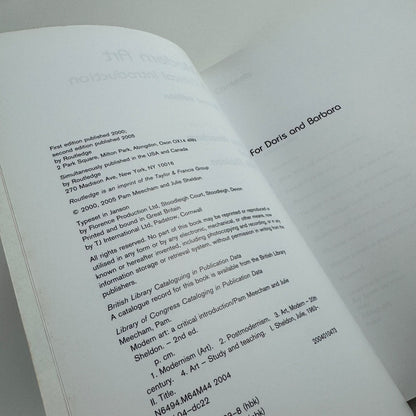 First edition published 2000,
second edition published 2005
by Routledge
2 Park Square, Milton Park, Abingdon, Oxon OX14 4RN
Simultaneously published in the USA and Canada
by Routledge
270 Madison Ave, New York, NY 10016
Routledge is an imprint of the Taylor & Francis Group
© 2000, 2005 Pam Meecham and Julie Sheldon
Typeset in Janson
by Florence Production Ltd, Stoodleigh Court, Stoodleigh, Devon
Printed and bound in Great Britain
by TJ International Ltd, Padstow, Cornwall
All rights reserved. No part of this book may be reprinted or reproduced or
utilised in any form or by any electronic, mechanical, or other means, now
known or hereafter invented, including photocopying and recording, or in any
information storage or retrieval system, without permission in writing from the
publishers.
British Library Cataloguing in Publication Data
A catalogue record for this book is available from the British Library
Library of Congress Cataloging in Publication Data
Meecham, Pam.
Modern art: a critical introduction/Pam Meecham and Julie
Sheldon. – 2nd ed.
p. cm.
1. Modernism (Art). 2. Postmodernism. 3. Art, Modern – 20th
century. 4. Art – Study and teaching. I. Sheldon, Julie, 1963–
II. Title.
N6494.M64M44 2004
04–dc22
2004010473
For Doris and Barbara